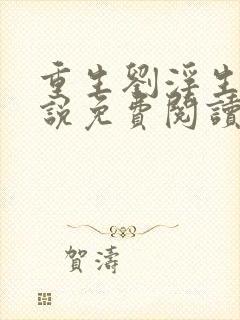 重生劉淫生
說免費閱讀
賀濤